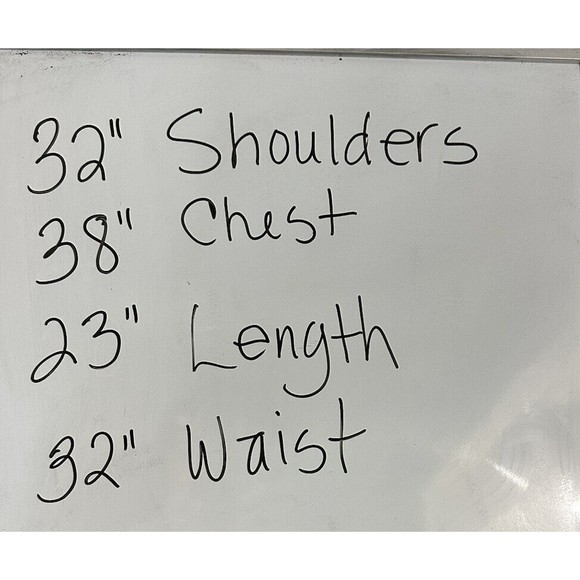 32" Shoulders
38" Chest
23" Length
32" Waist